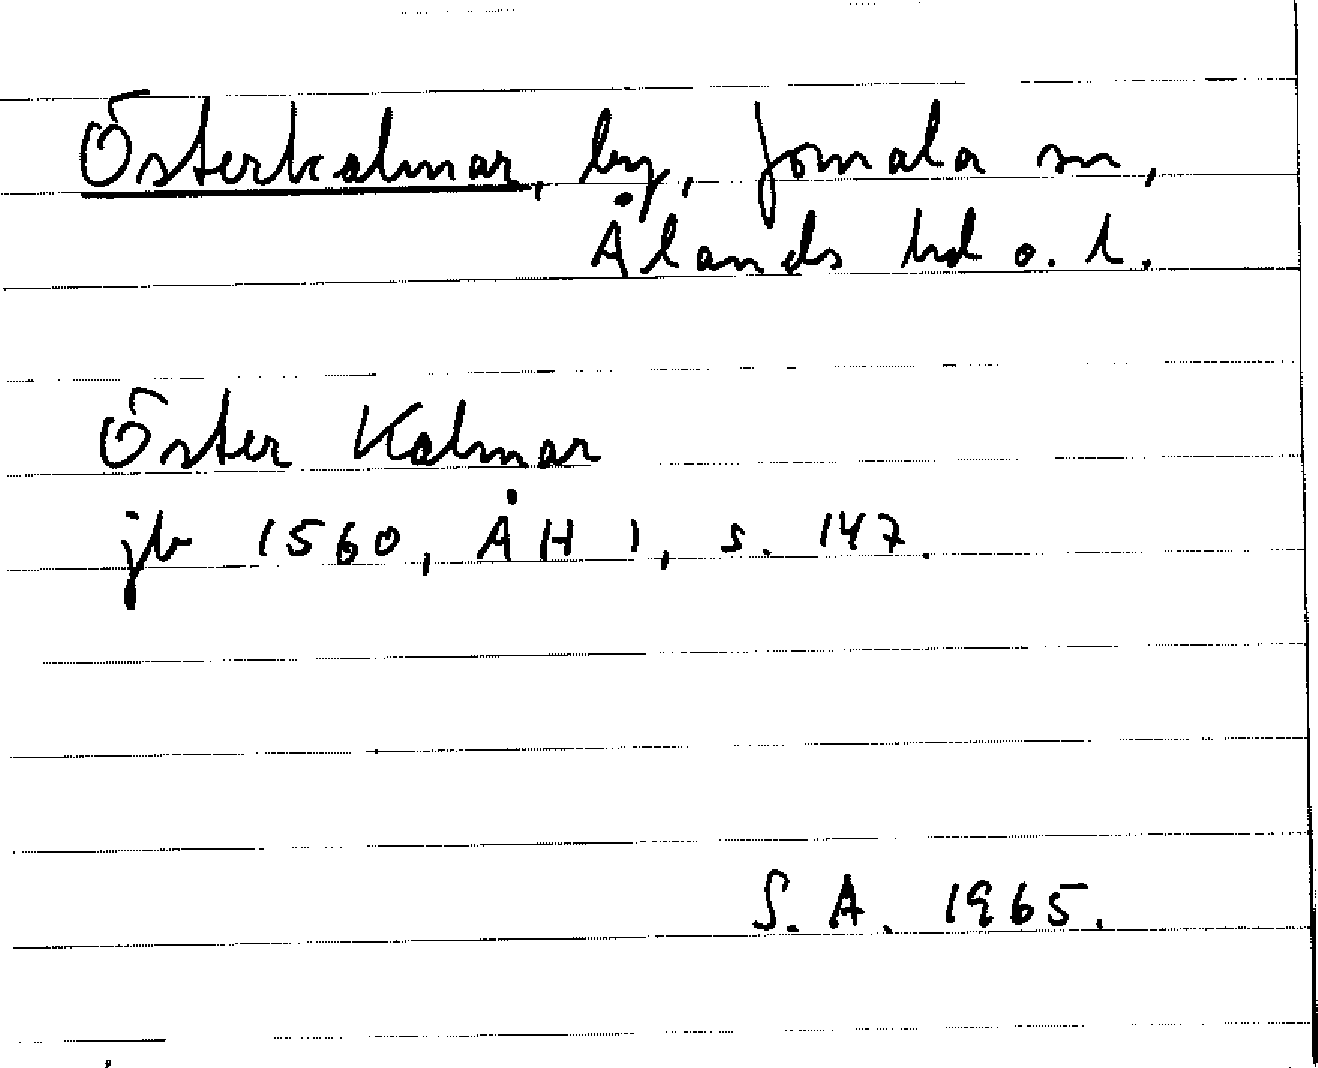 Österkalmar, by, Jomala sn,
Ålands hd o. l.
Öster Kalmar
jb 1560, ÅH 1, s. 147.
S. A. 1965.